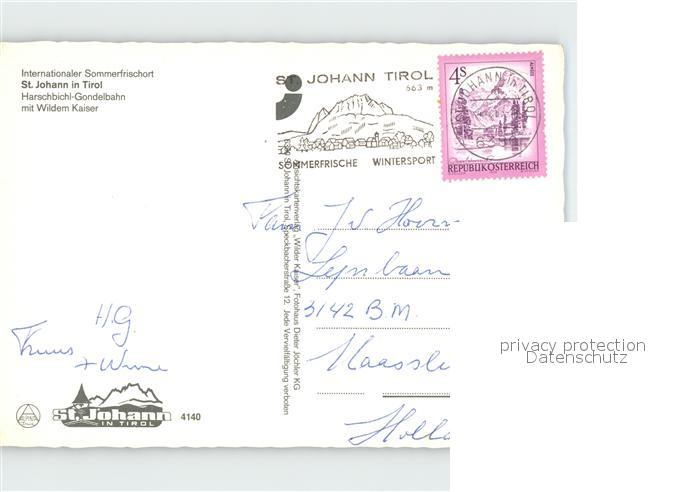 Internationaler Sommerfrischort
St. Johann in Tirol
Harschbichl-Gondelbahn
mit Wildem Kaiser
ST. JOHANN TIROL
663 m
SOMMERFRISCHE WINTERSPORT
4S
ST. JOHANN in TIROL
REPUBLIK ÖSTERREICH
Ansichtskartenverlag „Wilder Kaiser", Fotohaus Dieter Jöchler KG
St. Johann in Tirol, Speckbacherstraße 12. Jede Vervielfältigung verboten
Fam
3142 B.M.
Maassl
Holla
H.G.
St. Johann
IN TIROL
4140
privacy protection
Datenschutz